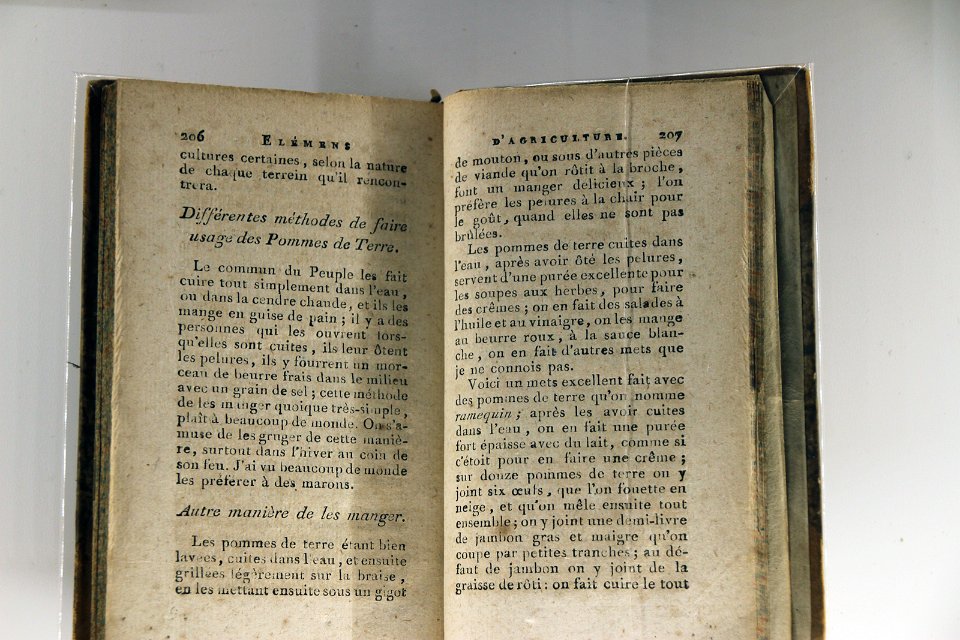 206 ELÉMENS
cultures certaines, selon la nature
de chaque terrein qu'il rencon-
trera.
Différentes méthodes de faire
usage des Pommes de Terre.
Le commun du Peuple les fait
cuire tout simplement dans l'eau,
ou dans la cendre chaude, et ils les
mange en guise de pain ; il y a des
personnes qui les ouvrent lors-
qu'elles sont cuites, ils leur ôtent
les pelures, ils y fourrent un mor-
ceau de beurre frais dans le milieu
avec un grain de sel ; cette méthode
de les manger quoique très-simple,
plaît à beaucoup de monde. On s'a-
muse de les gruger de cette maniè-
re, surtout dans l'hiver au coin de
son feu. J'ai vu beaucoup de monde
les préférer à des marons.
Autre manière de les manger.
Les pommes de terre étant bien
lavées, cuites dans l'eau, et ensuite
grillées légèrement sur la braise,
en les mettant ensuite sous un gigot
D'AGRICULTURE. 207
de mouton, ou sous d'autres pièces
de viande qu'on rôtit à la broche,
font un manger delicieux ; l'on
préfère les pelures à la chair pour
le goût, quand elles ne sont pas
brûlées.
Les pommes de terre cuites dans
l'eau, après avoir ôté les pelures,
servent d'une purée excellente pour
les soupes aux herbes, pour faire
des crêmes ; on en fait des salades à
l'huile et au vinaigre, on les mange
au beurre roux, à la sauce blan-
che, on en fait d'autres mets que
je ne connois pas.
Voici un mets excellent fait avec
des pommes de terre qu'on nomme
ramequin ; après les avoir cuites
dans l'eau, on en fait une purée
fort épaisse avec du lait, comme si
c'étoit pour en faire une crême ;
sur douze pommes de terre on y
joint six œufs, que l'on fouette en
neige, et qu'on mêle ensuite tout
ensemble ; on y joint une demi-livre
de jambon gras et maigre qu'on
coupe par petites tranches ; au dé-
faut de jambon on y joint de la
graisse de rôti : on fait cuire le tout